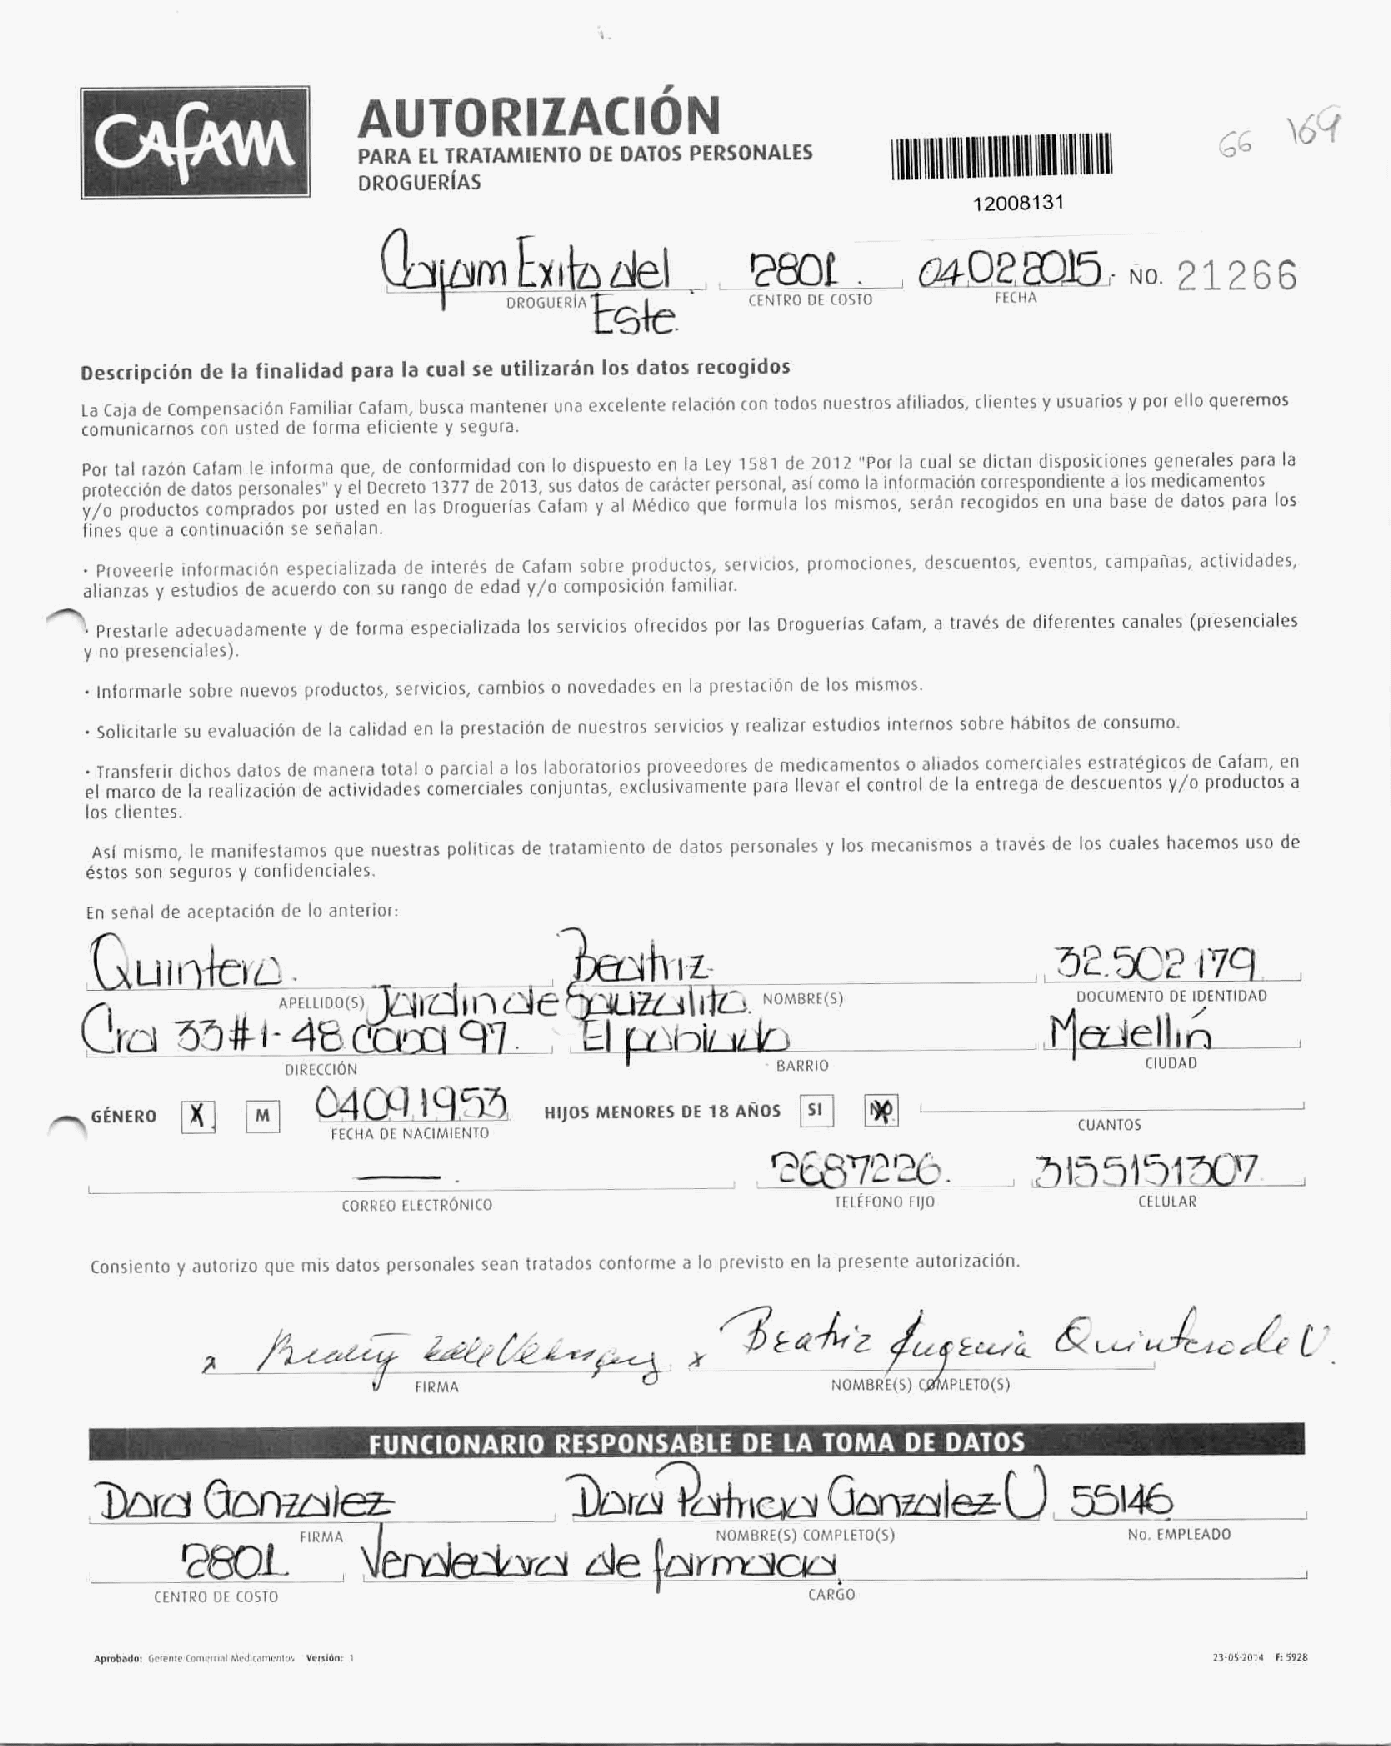 CAFAM
AUTORIZACIÓN
PARA EL TRATAMIENTO DE DATOS PERSONALES
DROGUERÍAS
12008131
66 169
Cafam Exito del Este.
2801.
04022015.
No. 21266
DROGUERÍA
CENTRO DE COSTO
FECHA
Descripción de la finalidad para la cual se utilizarán los datos recogidos
La Caja de Compensación Familiar Cafam, busca mantener una excelente relación con todos nuestros afiliados, clientes y usuarios y por ello queremos
comunicarnos con usted de forma eficiente y segura.
Por tal razón Cafam le informa que, de conformidad con lo dispuesto en la Ley 1581 de 2012 "Por la cual se dictan disposiciones generales para la
protección de datos personales" y el Decreto 1377 de 2013, sus datos de carácter personal, así como la información correspondiente a los medicamentos
y/o productos comprados por usted en las Droguerías Cafam y al Médico que formula los mismos, serán recogidos en una base de datos para los
fines que a continuación se señalan.
· Proveerle información especializada de interés de Cafam sobre productos, servicios, promociones, descuentos, eventos, campañas, actividades,
alianzas y estudios de acuerdo con su rango de edad y/o composición familiar.
· Prestarle adecuadamente y de forma especializada los servicios ofrecidos por las Droguerías Cafam, a través de diferentes canales (presenciales
y no presenciales).
· Informarle sobre nuevos productos, servicios, cambios o novedades en la prestación de los mismos.
· Solicitarle su evaluación de la calidad en la prestación de nuestros servicios y realizar estudios internos sobre hábitos de consumo.
· Transferir dichos datos de manera total o parcial a los laboratorios proveedores de medicamentos o aliados comerciales estratégicos de Cafam, en
el marco de la realización de actividades comerciales conjuntas, exclusivamente para llevar el control de la entrega de descuentos y/o productos a
los clientes.
Así mismo, le manifestamos que nuestras políticas de tratamiento de datos personales y los mecanismos a través de los cuales hacemos uso de
éstos son seguros y confidenciales.
En señal de aceptación de lo anterior:
Quintero. Beatriz 32.502179
APELLIDO(S) NOMBRE(S) DOCUMENTO DE IDENTIDAD
Jardin de Sauzalito.
Cra 33#1-48 casa 97. El poblado Medellín
DIRECCIÓN BARRIO CIUDAD
GÉNERO X M 04091953 HIJOS MENORES DE 18 AÑOS SI
FECHA DE NACIMIENTO CUANTOS
2687226. 3155151307
CORREO ELECTRÓNICO TELÉFONO FIJO CELULAR
Consiento y autorizo que mis datos personales sean tratados conforme a lo previsto en la presente autorización.
x x Beatriz Eugenia Quintero de V.
FIRMA NOMBRE(S) COMPLETO(S)
FUNCIONARIO RESPONSABLE DE LA TOMA DE DATOS
Dora Gonzalez Dora Patricia Gonzalez U 55146
FIRMA NOMBRE(S) COMPLETO(S) No. EMPLEADO
2801 Vendedora de farmacia
CENTRO DE COSTO CARGO
Aprobado: Gerente Comercial Medicamentos Versión: 1 23-05-2014 F: 5928